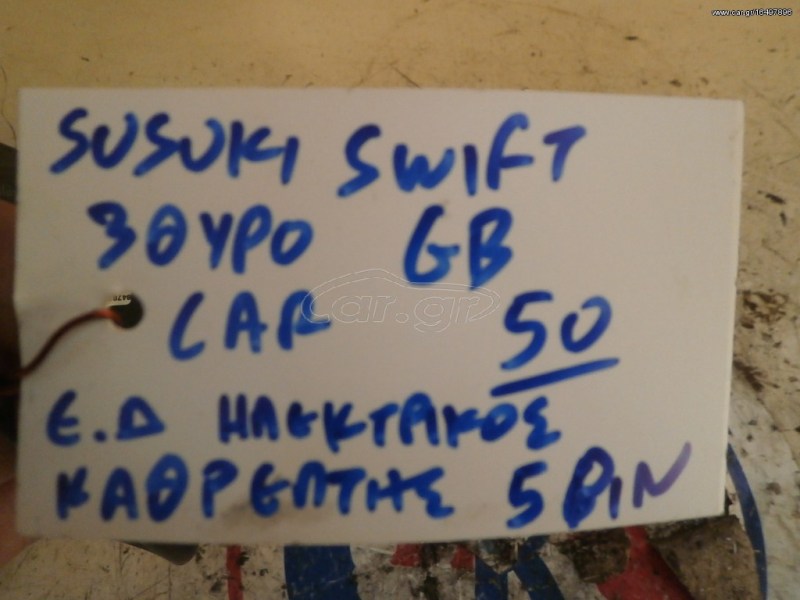 www.car.gr/16467806
SUSUKI SWIFT
3ΘΥΡΟ GB
CAR 50
car.gr
Ε.Δ ΗΛΕΚΤΡΙΚΟΣ
ΚΑΘΡΕΠΤΗΣ 5 PIN